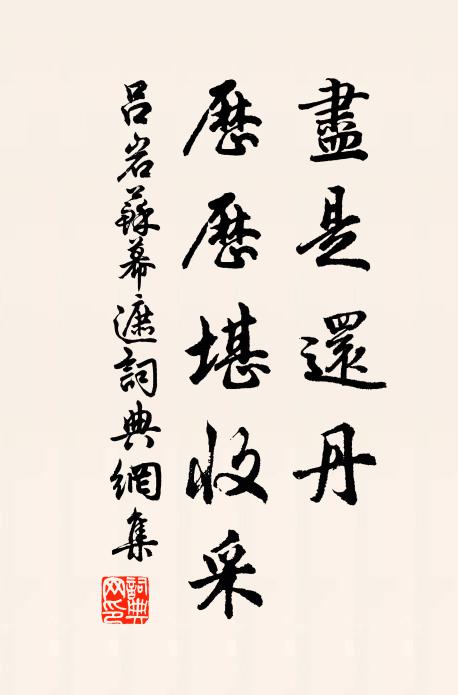 盡是還丹
歷歷堪收采
呂岩蘇幕遮詞典網集
詞典网印